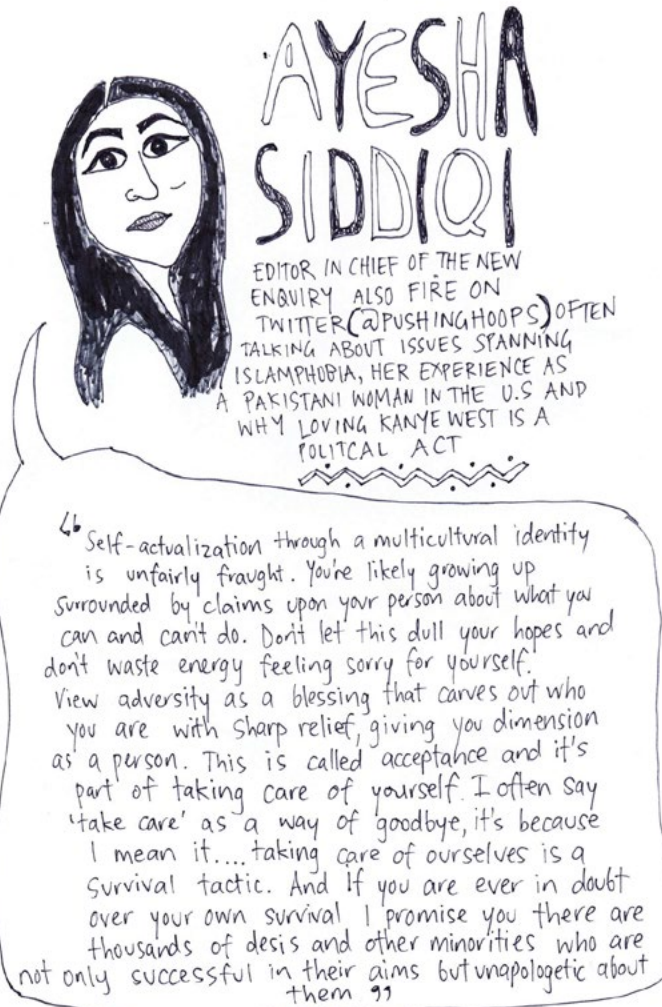 AYESHA
SIDDIQI
EDITOR IN CHIEF OF THE NEW
ENQUIRY ALSO FIRE ON
TWITTER (@PUSHINGHOOPS) OFTEN
TALKING ABOUT ISSUES SPANNING
ISLAMPHOBIA, HER EXPERIENCE AS
A PAKISTANI WOMAN IN THE U.S AND
WHY LOVING KANYE WEST IS A
POLITCAL ACT
“Self-actualization through a multicultural identity
is unfairly fraught. You're likely growing up
surrounded by claims upon your person about what you
can and can't do. Don't let this dull your hopes and
don't waste energy feeling sorry for yourself.
View adversity as a blessing that carves out who
you are with sharp relief, giving you dimension
as a person. This is called acceptance and it's
part of taking care of yourself. I often say
'take care' as a way of goodbye, it's because
I mean it.... taking care of ourselves is a
survival tactic. And If you are ever in doubt
over your own survival I promise you there are
thousands of desis and other minorities who are
not only successful in their aims but unapologetic about
them ”